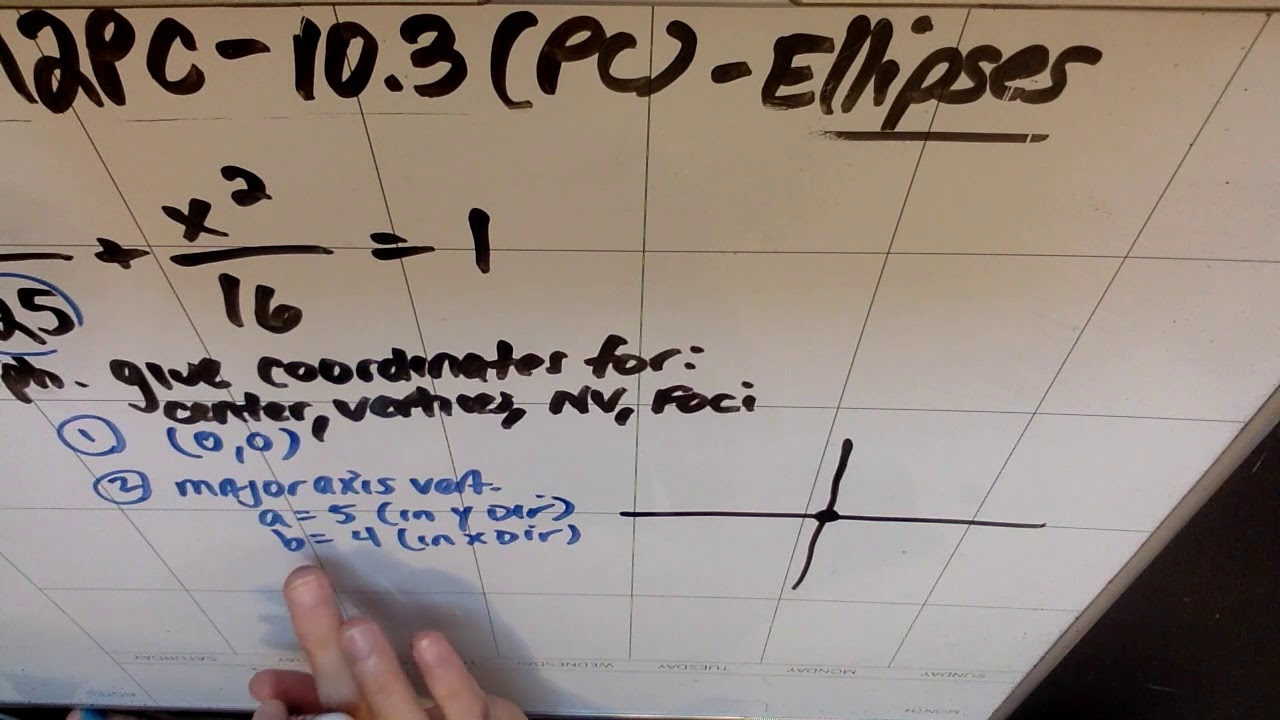 12PC - 10.3 (PC) - Ellipses
+ x² = 1
25 16
ph. give coordinates for:
center, vertices, NV, Foci
① (0,0)
② major axis vert.
a = 5 (in y Dir)
b = 4 (in x Dir)
SATURDAY WEDNESDAY TUESDAY MONDAY SUNDAY